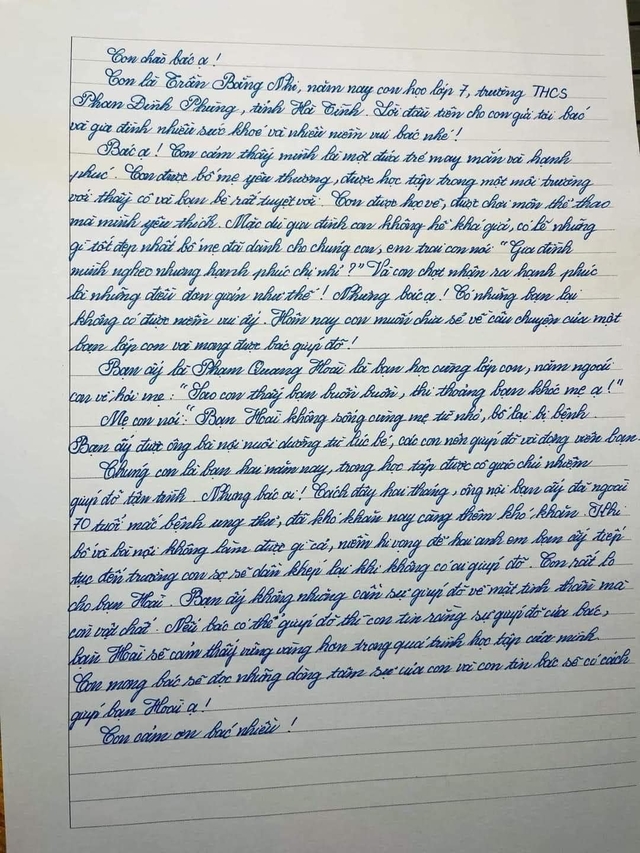 Con chào bác ạ !
Con là Trần Băng Nhi, năm nay con học lớp 7, trường THCS
Phan Đình Phùng, tỉnh Hà Tĩnh. Lời đầu tiên cho con gửi tới bác
và gia đình nhiều sức khoẻ và nhiều niềm vui bác nhé !
Bác ạ ! Con cảm thấy mình là một đứa trẻ may mắn và hạnh
phúc. Con được bố mẹ yêu thương, được học tập trong một môi trường
với thầy cô và bạn bè rất tuyệt vời. Con được học vẽ, được chơi môn thể thao
mà mình yêu thích. Mặc dù gia đình con không hề khá giả, có lẽ những
gì tốt đẹp nhất bố mẹ đã dành cho chúng con, em trai con nói "Gia đình
mình nghèo nhưng hạnh phúc chị nhỉ ?" Và con chợt nhận ra hạnh phúc
là những điều đơn giản như thế ! Nhưng bác ạ ! Có những bạn lại
không có được niềm vui ấy. Hôm nay con muốn chia sẻ về câu chuyện của một
bạn lớp con và mong được bác giúp đỡ !
Bạn ấy là Phạm Quang Hoài là bạn học cùng lớp con, năm ngoái
con về hỏi mẹ : "Sao con thấy bạn buồn buồn, thi thoảng bạn khóc mẹ ạ !"
Mẹ con nói : "Bạn Hoài không sống cùng mẹ từ nhỏ, bố lại bị bệnh
Bạn ấy được ông bà nội nuôi dưỡng từ lúc bé, các con nên giúp đỡ và động viên bạn.
Chúng con là bạn hai năm nay, trong học tập được cô giáo chủ nhiệm
giúp đỡ tận tình. Nhưng bác ơi ! Cách đây hai tháng, ông nội bạn ấy đã ngoài
70 tuổi mắc bệnh ung thư, đã khó khăn nay càng thêm khó khăn. Khi
bố và bà nội không làm được gì cả, niềm hi vọng để hai anh em bạn ấy tiếp
tục đến trường con sợ sẽ dần khép lại khi không có ai giúp đỡ. Con rất lo
cho bạn Hoài. Bạn ấy không những cần sự giúp đỡ về mặt tinh thần mà
còn vật chất. Nếu bác có thể giúp đỡ thì con tin rằng sự giúp đỡ của bác,
bạn Hoài sẽ cảm thấy vững vàng hơn trong quá trình học tập của mình.
Con mong bác sẽ đọc những dòng tâm sự của con và con tin bác sẽ có cách
giúp bạn Hoài ạ !
Con cảm ơn bác nhiều !